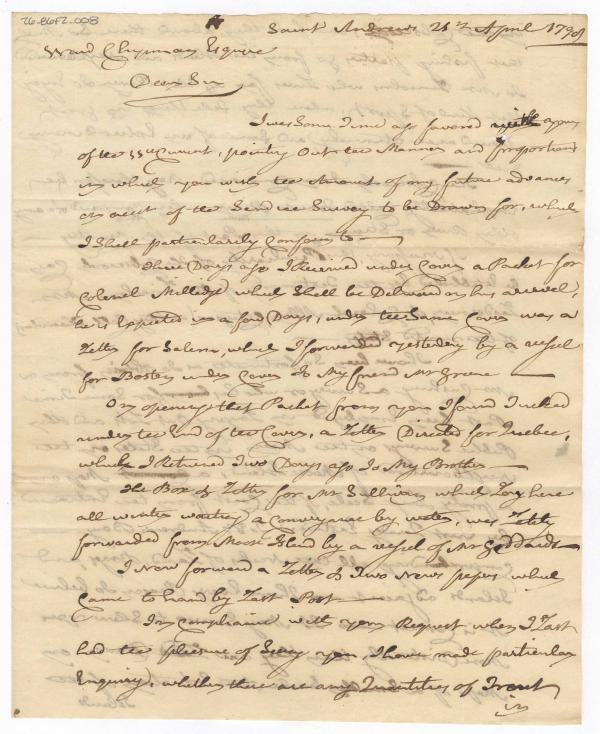 26-86F2-008
Saint Andrews 21st April 1798
Ward Chipman Esquire
Dear Sir
I was Some Time ago favored with yours
of the Current, pointing Out the Manner and Proportions
in which you wish the Amount of my future advances
on acct of the Service Survey to be Drawn for, which
I Shall particularly Conform to —
three Days ago I Received under Cover a Packet for
Colonel Millidge which Shall be Delivered on his arrival,
he is Expected in a few Days, under the Same Cover was a
Letter for Salem, which I forwarded yesterday by a vessel
for Boston under Cover to My friend Mr Greene —
On opening that Packet from you I found Tucked
under the End of the Cover, a Letter Directed for Quebec,
which I Returned Two Days ago to My Brother —
the Box & Letter for Mr Sullivan which Lay here
all winter waiting a Conveyance by water, was Lately
forwarded from Moose Island by a vessel of Mr Goddards —
I Now forward a Letter & Two News papers which
Came to hand by Last Post —
In Compliance with your Request when I Last
had the pleasure of Seeing you, I have made particular
Enquiry, whether there are any Quantities of Trout
in